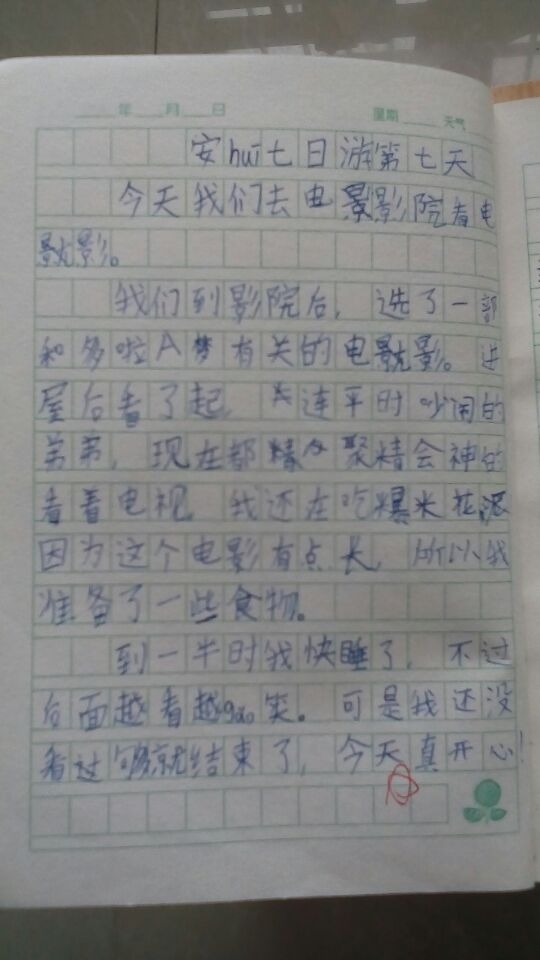 年 月 日 星期 天气
安huī七日游第七天
今天我们去电影院看电
影。
我们到影院后，选了一部
和多啦A梦有关的电影。进
屋后看了起，连平时吵闹的
弟弟，现在都聚精会神的
看着电视，我还在吃爆米花呢
因为这个电影有点长，所以我
准备了一些食物。
到一半时我快睡了，不过
后面越看越gǎo笑。可是我还没
看过够就结束了，今天真开心！